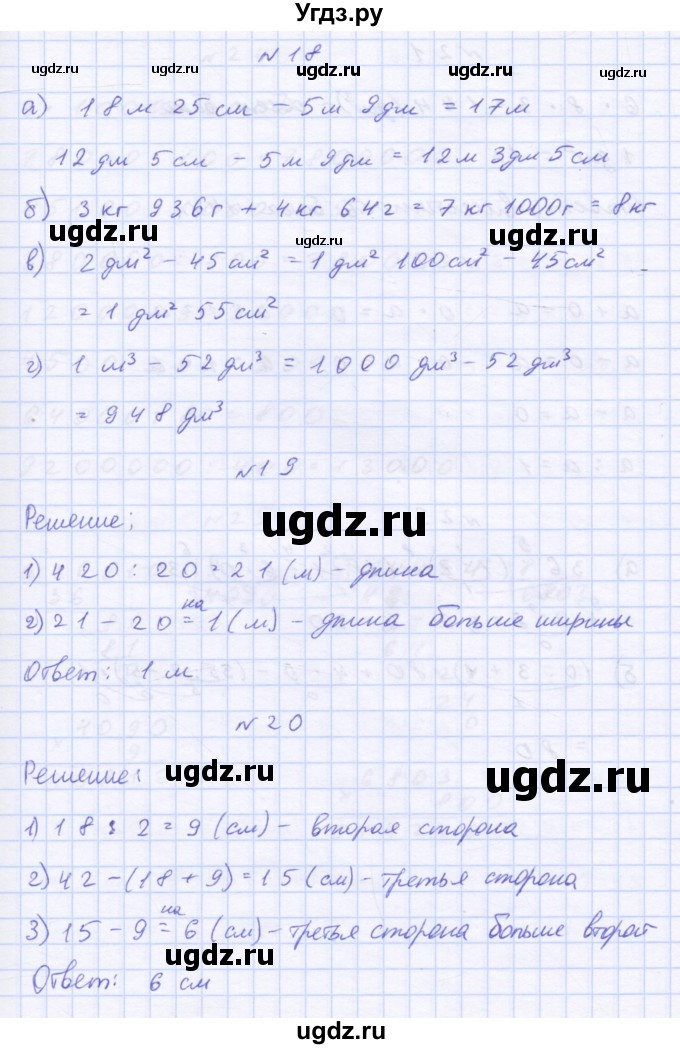 Угдз.ру
№18
ugdz.ru ugdz.ru ugdz.ru ugdz.ru
а) 18м 25см - 5м 9дм = 17м
12дм 5см - 5м 9дм = 12м 3дм 5см
б) 3кг 936г + 4кг 64г = 7кг 1000г = 8кг
ugdz.ru ugdz.ru ugdz.ru ugdz.ru
в) 2дм² - 45см² = 1дм² 100см² - 45см²
= 1дм² 55см²
г) 1м³ - 52дм³ = 1000дм³ - 52дм³
= 948дм³
№19
Решение;
ugdz.ru ugdz.ru
1) 420 : 20 = 21(м) - длина
2) 21 - 20 = на 1(м) - длина больше ширины
Ответ: 1м
№20
Решение:
ugdz.ru ugdz.ru
1) 18 : 2 = 9 (см) - вторая сторона
2) 42 - (18 + 9) = 15(см) - третья сторона
3) 15 - 9 = на 6 (см) - третья сторона больше второй
ugdz.ru ugdz.ru
Ответ: 6 см
ugdz.ru